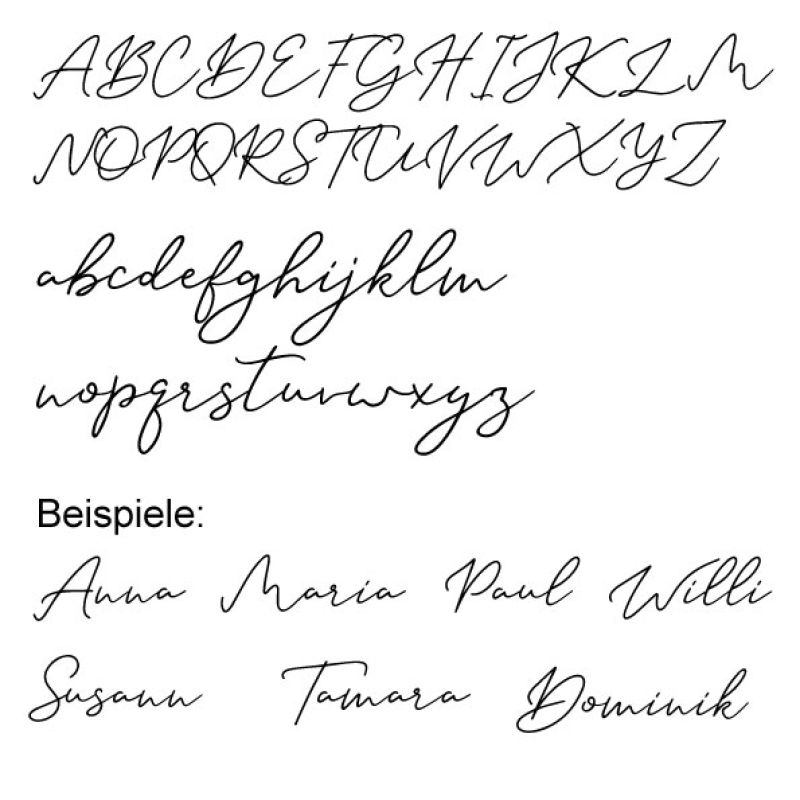 ABCDEFGHIJKLM
NOPQRSTUVWXYZ
abcdefghijklm
nopqrstuvwxyz
Beispiele:
Anna Maria Paul Willi
Susann Tamara Dominik